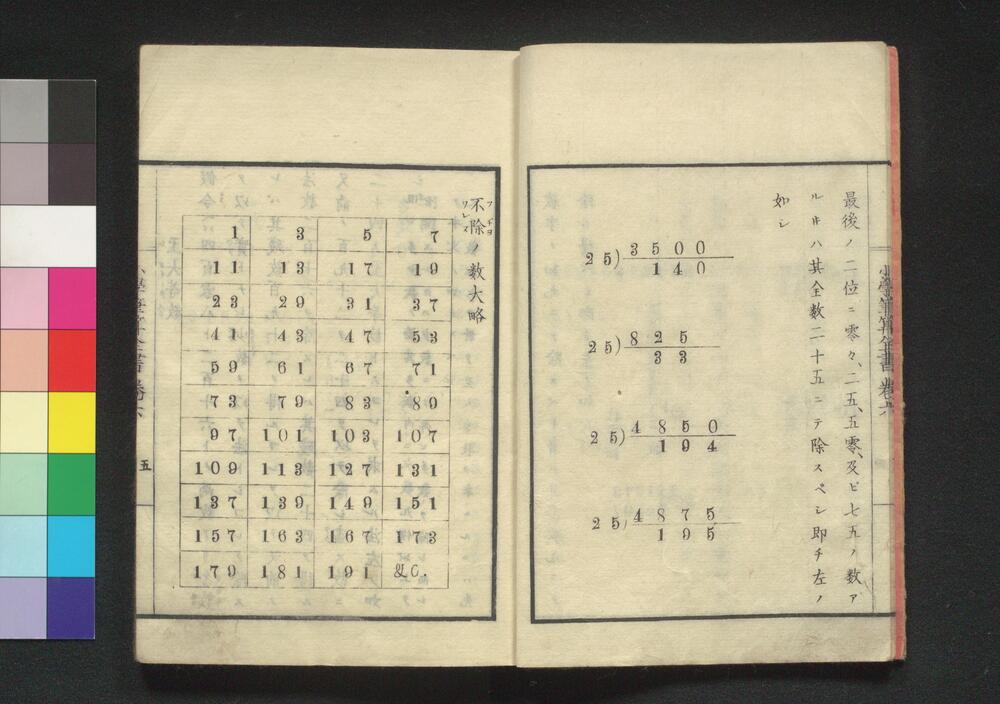 最後ノ二位ニ零々、二五、五零、及ビ七五ノ數ア
ルキハ其全数二十五ニテ除スベシ即チ左ノ
如シ
25)3500
140
25)825
33
25)4850
194
25)4875
195
不除ノ数大略
フヂヨ
ワレヌ
1 3 5 7
11 13 17 19
23 29 31 37
41 43 47 53
59 61 67 71
73 79 83 89
97 101 103 107
109 113 127 131
137 139 149 151
157 163 167 173
179 181 191 &C.
五